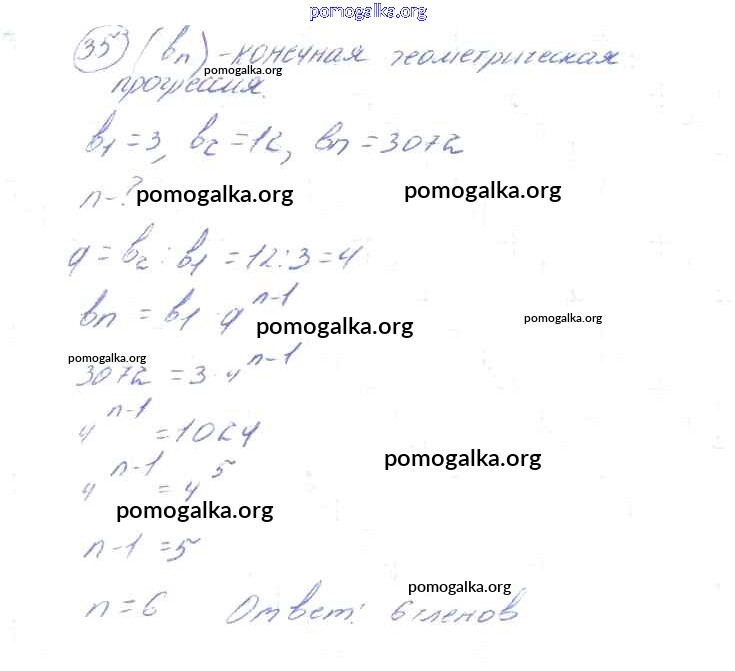 pomogalka.org
35 (bn) - конечная геометрическая
pomogalka.org
прогрессия.
b1 = 3, b2 = 12, bn = 3072
n - ?
pomogalka.org
pomogalka.org
q = b2 : b1 = 12 : 3 = 4
bn = b1 · q^n-1
pomogalka.org
pomogalka.org
pomogalka.org
3072 = 3 · 4^n-1
4^n-1 = 1024
pomogalka.org
4^n-1 = 4^5
pomogalka.org
n - 1 = 5
pomogalka.org
n = 6 Ответ: 6 членов